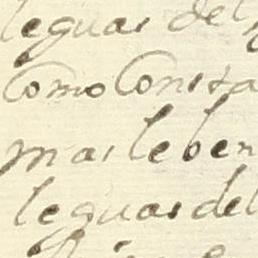 leguas del
Como Consta
mas le ben
leguas del